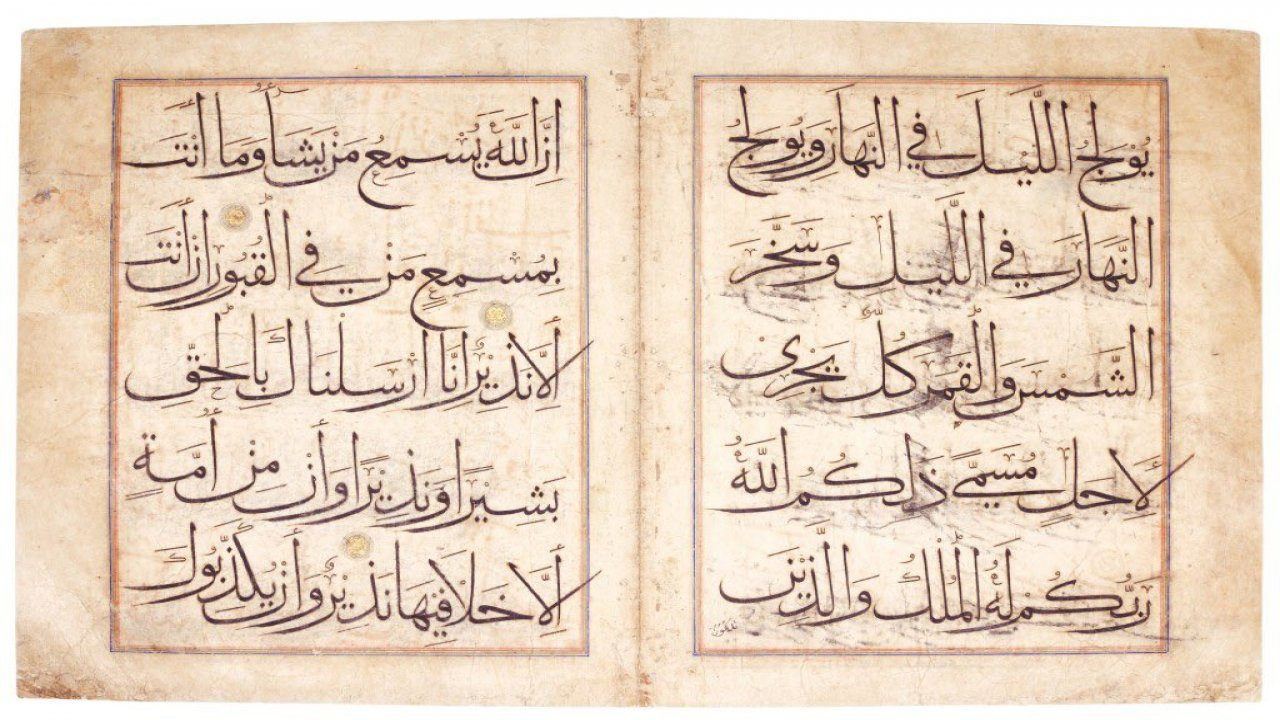 يُولِجُ اللَّيْلَ فِي النَّهَارِ وَيُولِجُ
النَّهَارَ فِي اللَّيْلِ وَسَخَّرَ
الشَّمْسَ وَالْقَمَرَ كُلٌّ يَجْرِي
لِأَجَلٍ مُسَمًّى ذَلِكُمُ اللَّهُ
رَبُّكُمْ لَهُ الْمُلْكُ وَالَّذِينَ
إِنَّ اللَّهَ يُسْمِعُ مَنْ يَشَأُ وَمَا أَنْتَ
بِمُسْمِعٍ مَنْ فِي الْقُبُورِ إِنْ أَنْتَ
إِلَّا نَذِيرٌ إِنَّا أَرْسَلْنَاكَ بِالْحَقِّ
بَشِيرًا وَنَذِيرًا وَإِنْ مِنْ أُمَّةٍ
إِلَّا خَلَا فِيهَا نَذِيرٌ وَإِنْ يُكَذِّبُوكَ